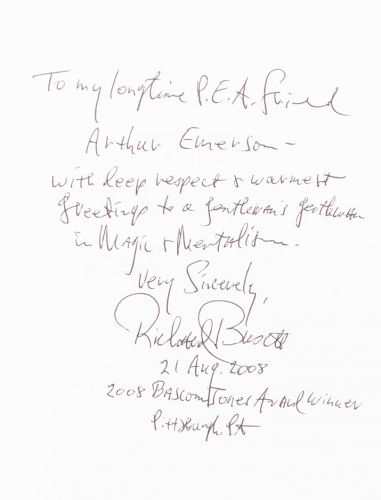 To my longtime P.E.A. friend
Arthur Emerson -
with deep respect & warmest
greetings to a gentleman's gentleman
in Magic & Mentalism.
Very Sincerely,
Richard Busch
21 Aug. 2008
2008 Bascom Jones Award Winner
Pittsburgh, PA